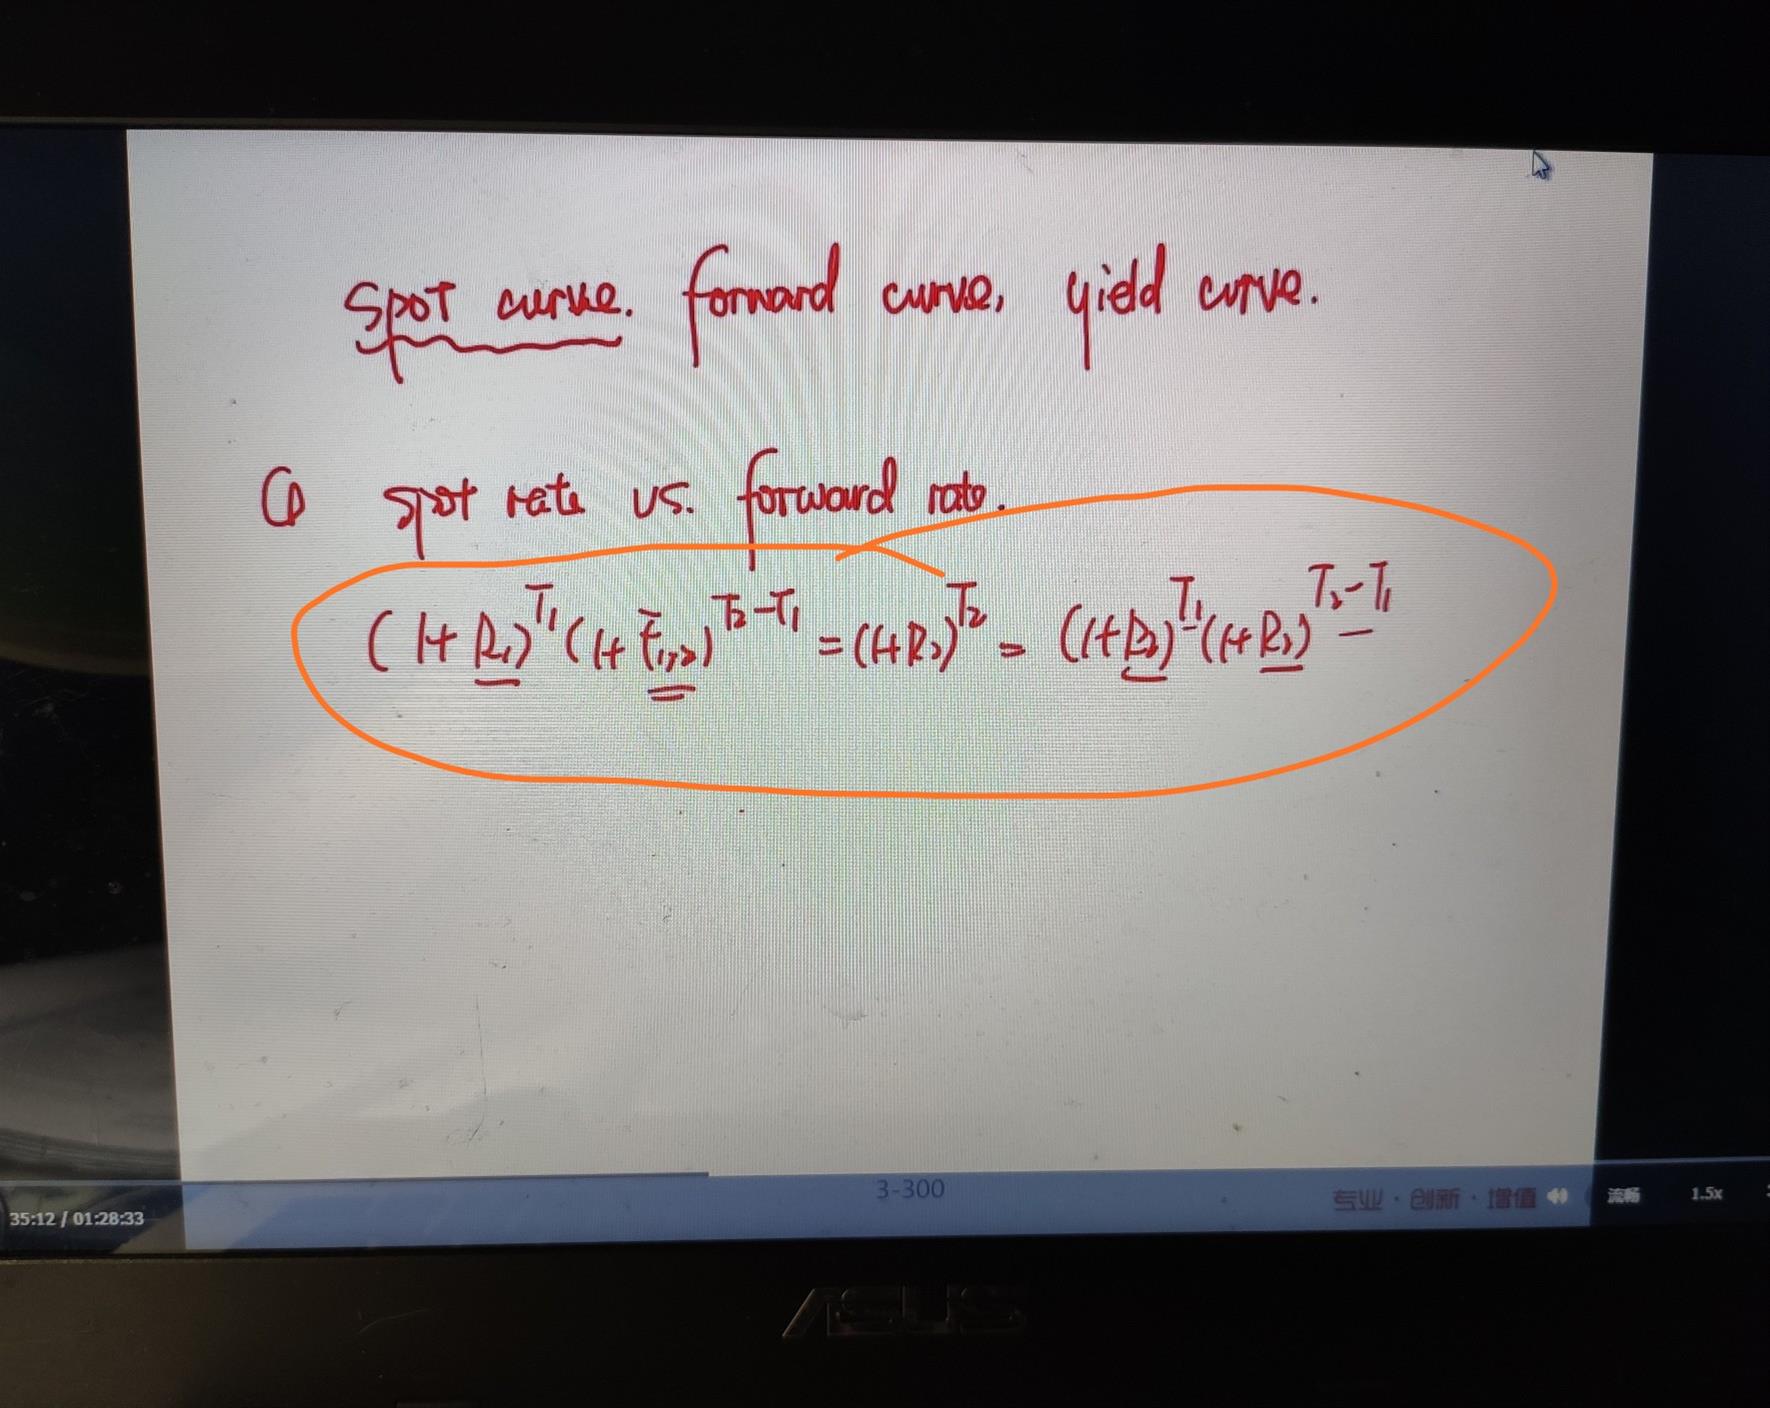 spot curve. forward curve, yield curve.
① spot rate vs. forward rate.
(1+R₁)^T₁ (1+F₁,₂)^T₂-T₁ = (1+R₂)^T₂ = (1+R₂)^T₁ (1+R₂)^T₂-T₁
3-300
专业·创新·增值
流畅 1.5x
35:12 / 01:28:33
ASUS